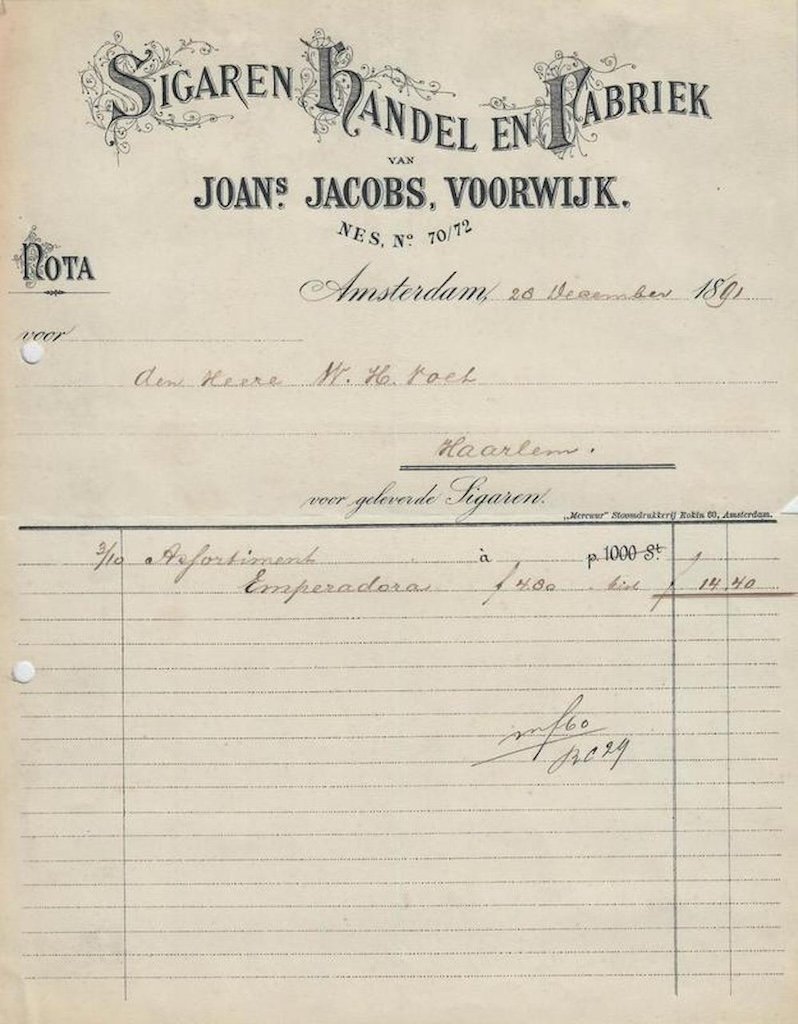 SIGAREN HANDEL EN FABRIEK
VAN
JOANS. JACOBS, VOORWIJK.
NES, No. 70/72
NOTA
Amsterdam, 28 December 1891
voor
den Heere W. H. Voet
Haarlem.
voor geleverde Sigaren.
„Mercuur” Stoomdrukkerij Rokin 60, Amsterdam.
3/10 Assortiment à p. 1000 St. f
Emperadora f 4.80 f 14.40